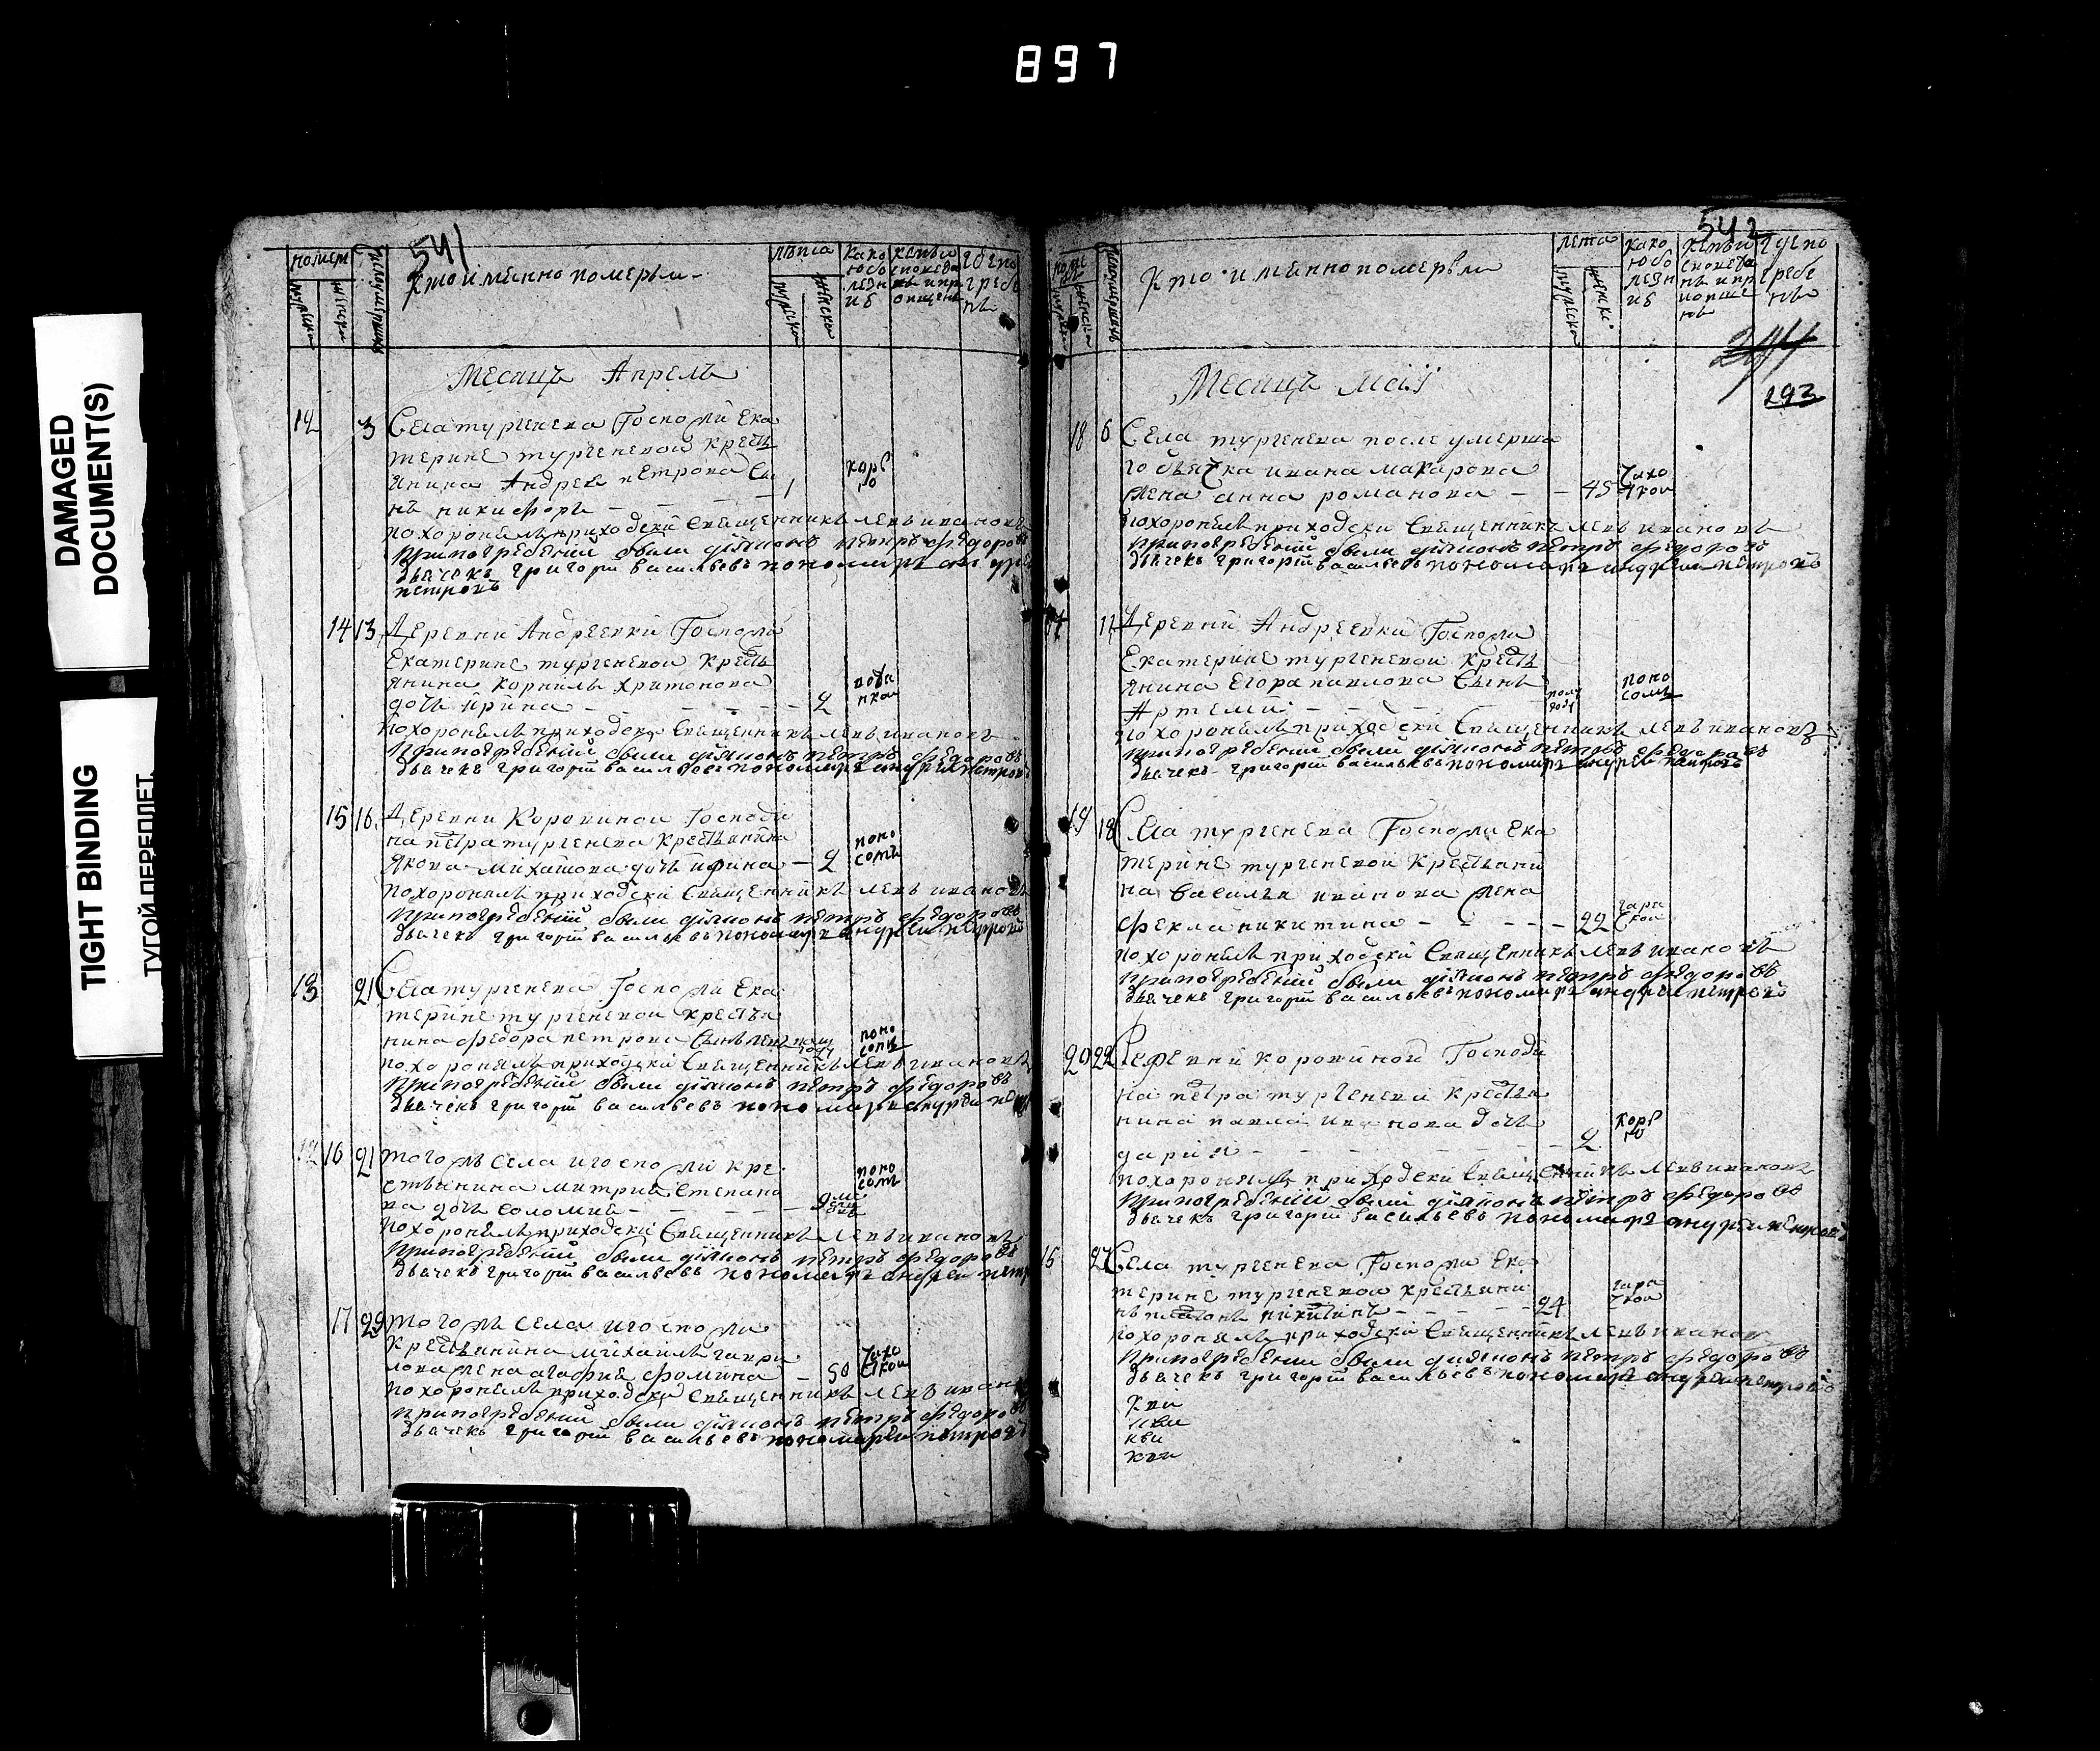 897
DAMAGED
DOCUMENT(S)
TIGHT BINDING
ТУГОЙ ПЕРЕПЛЕТ
541
Кто имянно померли
лѣта
Месяцъ Апрель
12 3 Села тургенева Госпожи Ека
терине тургеневой крестъ
янина Андрея петрова Сы
нъ никифоръ 1
похоронилъ приходски Священникъ левъ ивановъ
при погребении были диаконъ петръ федоровъ
дьячекъ григорий васильевъ пономарь андрей
петровъ
14 13 Деревни Андреевки Госпожи
Екатерине тургеневой крестъ
янина Корнила Харитонова
дочь ирина 2
похоронилъ приходски Священникъ левъ ивановъ
при погребении были диаконъ петръ федоровъ
дьячекъ григорий васильевъ пономарь андрей петровъ
15 16 Деревни Коровиной Господи
на петра тургенева крестьянина
Якова Михайлова дочь 2
поно
сомъ
похоронилъ приходски Священникъ левъ ивановъ
при погребении были диаконъ петръ федоровъ
дьячекъ григорий васильевъ пономарь андрей петровъ
13 21 Села тургенева Госпожи Ека
терине тургеневой крестья
нина федора петрова Сынъ
поно
сомъ
похоронилъ приходски Священникъ левъ ивановъ
при погребении были диаконъ петръ федоровъ
дьячекъ григорий васильевъ пономарь андрей
16 21 того ж села и госпожи кре
стьянина митрия Степано
ва дочь Соломия
поно
сомъ
похоронилъ приходски Священникъ левъ ивановъ
при погребении были диаконъ петръ федоровъ
дьячекъ григорий васильевъ пономарь андрей
17 29 того ж села и госпожи
Крестьянина михаила гаври
лова жена агафия фомина 50
похоронилъ приходски Священникъ левъ
при погребении были диаконъ петръ федоровъ
дьячекъ григорий васильевъ пономарь петровъ
542
Кто имянно померли
лета
293
Месяцъ Маий
18 6 Села тургенева после умерша
го дьячка ивана макарова
жена анна романова 45
похоронилъ приходски Священникъ левъ ивановъ
при погребении были диаконъ петръ федоровъ
дьячекъ григорий васильевъ пономарь андрей петровъ
11 Деревни Андреевки Госпожи
Екатерине тургеневой кресть
янина Егора павлова Сынъ
Артемий
поно
сомъ
похоронилъ приходски Священникъ левъ ивановъ
при погребении были диаконъ петръ федоровъ
дьячекъ григорий васильевъ пономарь андрей петровъ
19 18 Села тургенева Госпожи Ека
терине тургеневой крестьяни
на Василья иванова жена
фекла никитина 22
похоронилъ приходски Священникъ левъ ивановъ
при погребении были диаконъ петръ федоровъ
дьячекъ григорий васильевъ пономарь андрей петровъ
20 22 Деревни коровиной Господи
на петра тургенева крестья
нина павла иванова дочь
дария 2
похоронилъ приходски Священникъ левъ ивановъ
при погребении были диаконъ петръ федоровъ
дьячекъ григорий васильевъ пономарь андрей петровъ
15 27 Села тургенева Госпожи Ека
терине тургеневой крестьяни
нъ никитинъ 24
похоронилъ приходски Священникъ левъ ивановъ
при погребении были диаконъ петръ федоровъ
дьячекъ григорий васильевъ пономарь андрей петровъ